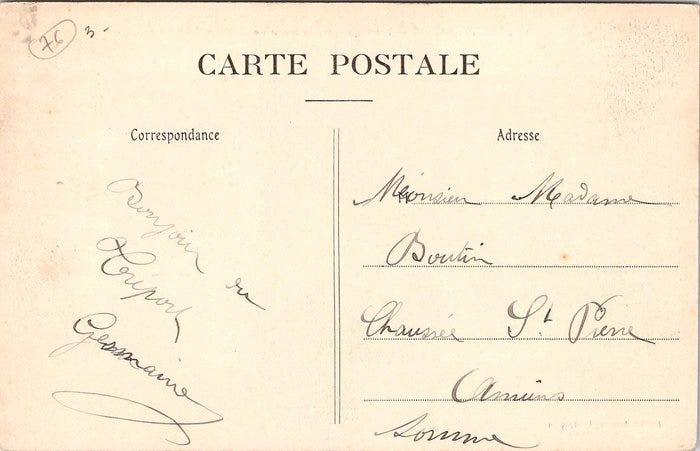 76 3-
CARTE POSTALE
Correspondance
Adresse
Bonjour du
Tréport
Germaine
Monsieur Madame
Boutin
Chaussée St Pierre
Amiens
Somme